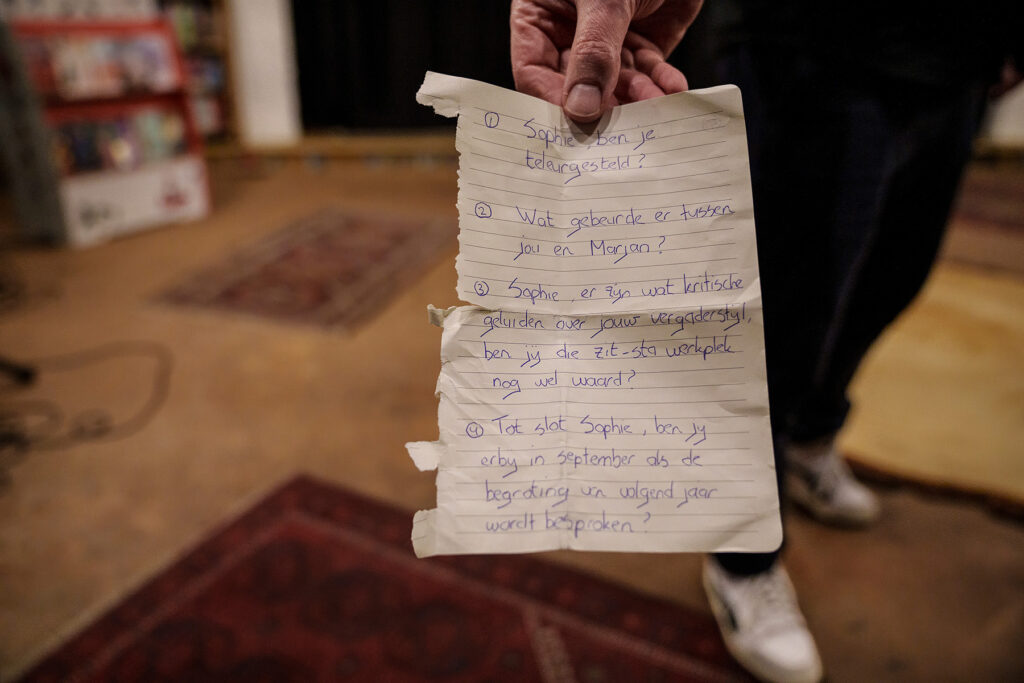 ① Sophie, ben je
teleurgesteld?
② Wat gebeurde er tussen
jou en Marjan?
③ Sophie, er zijn wat kritische
geluiden over jouw vergaderstijl,
ben jij die zit-sta werkplek
nog wel waard?
④ Tot slot Sophie, ben jij
erbij in september als de
begroting v'n volgend jaar
wordt besproken?